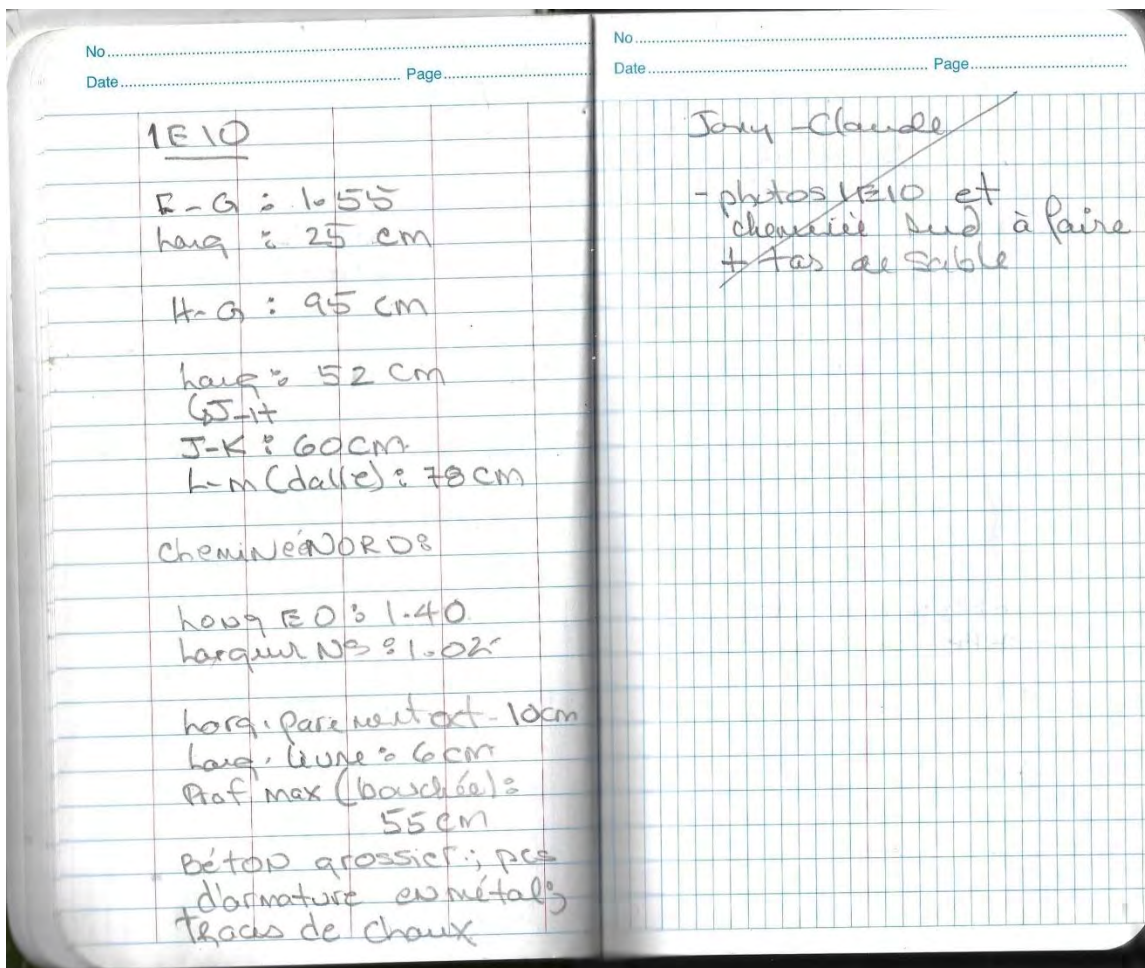 No
Date Page
1E10
E-G : 1.55
larg : 25 cm
H-G : 95 cm
larg : 52 cm
GJ-H
J-K : 60cm
L-m (dalle) : 78 cm
chemiNéeNORD :
Long E O : 1.40
Largeur NS : 1.02
Larg. parement 10cm
Larg. : 6 cm
Prof max (bouchée) :
55 cm
Béton grossier ; pas
d'armature en métal ;
traces de chaux
No
Date Page
-Claude
- photos 1E10 et
cheminée Sud à faire
+ tas de sable